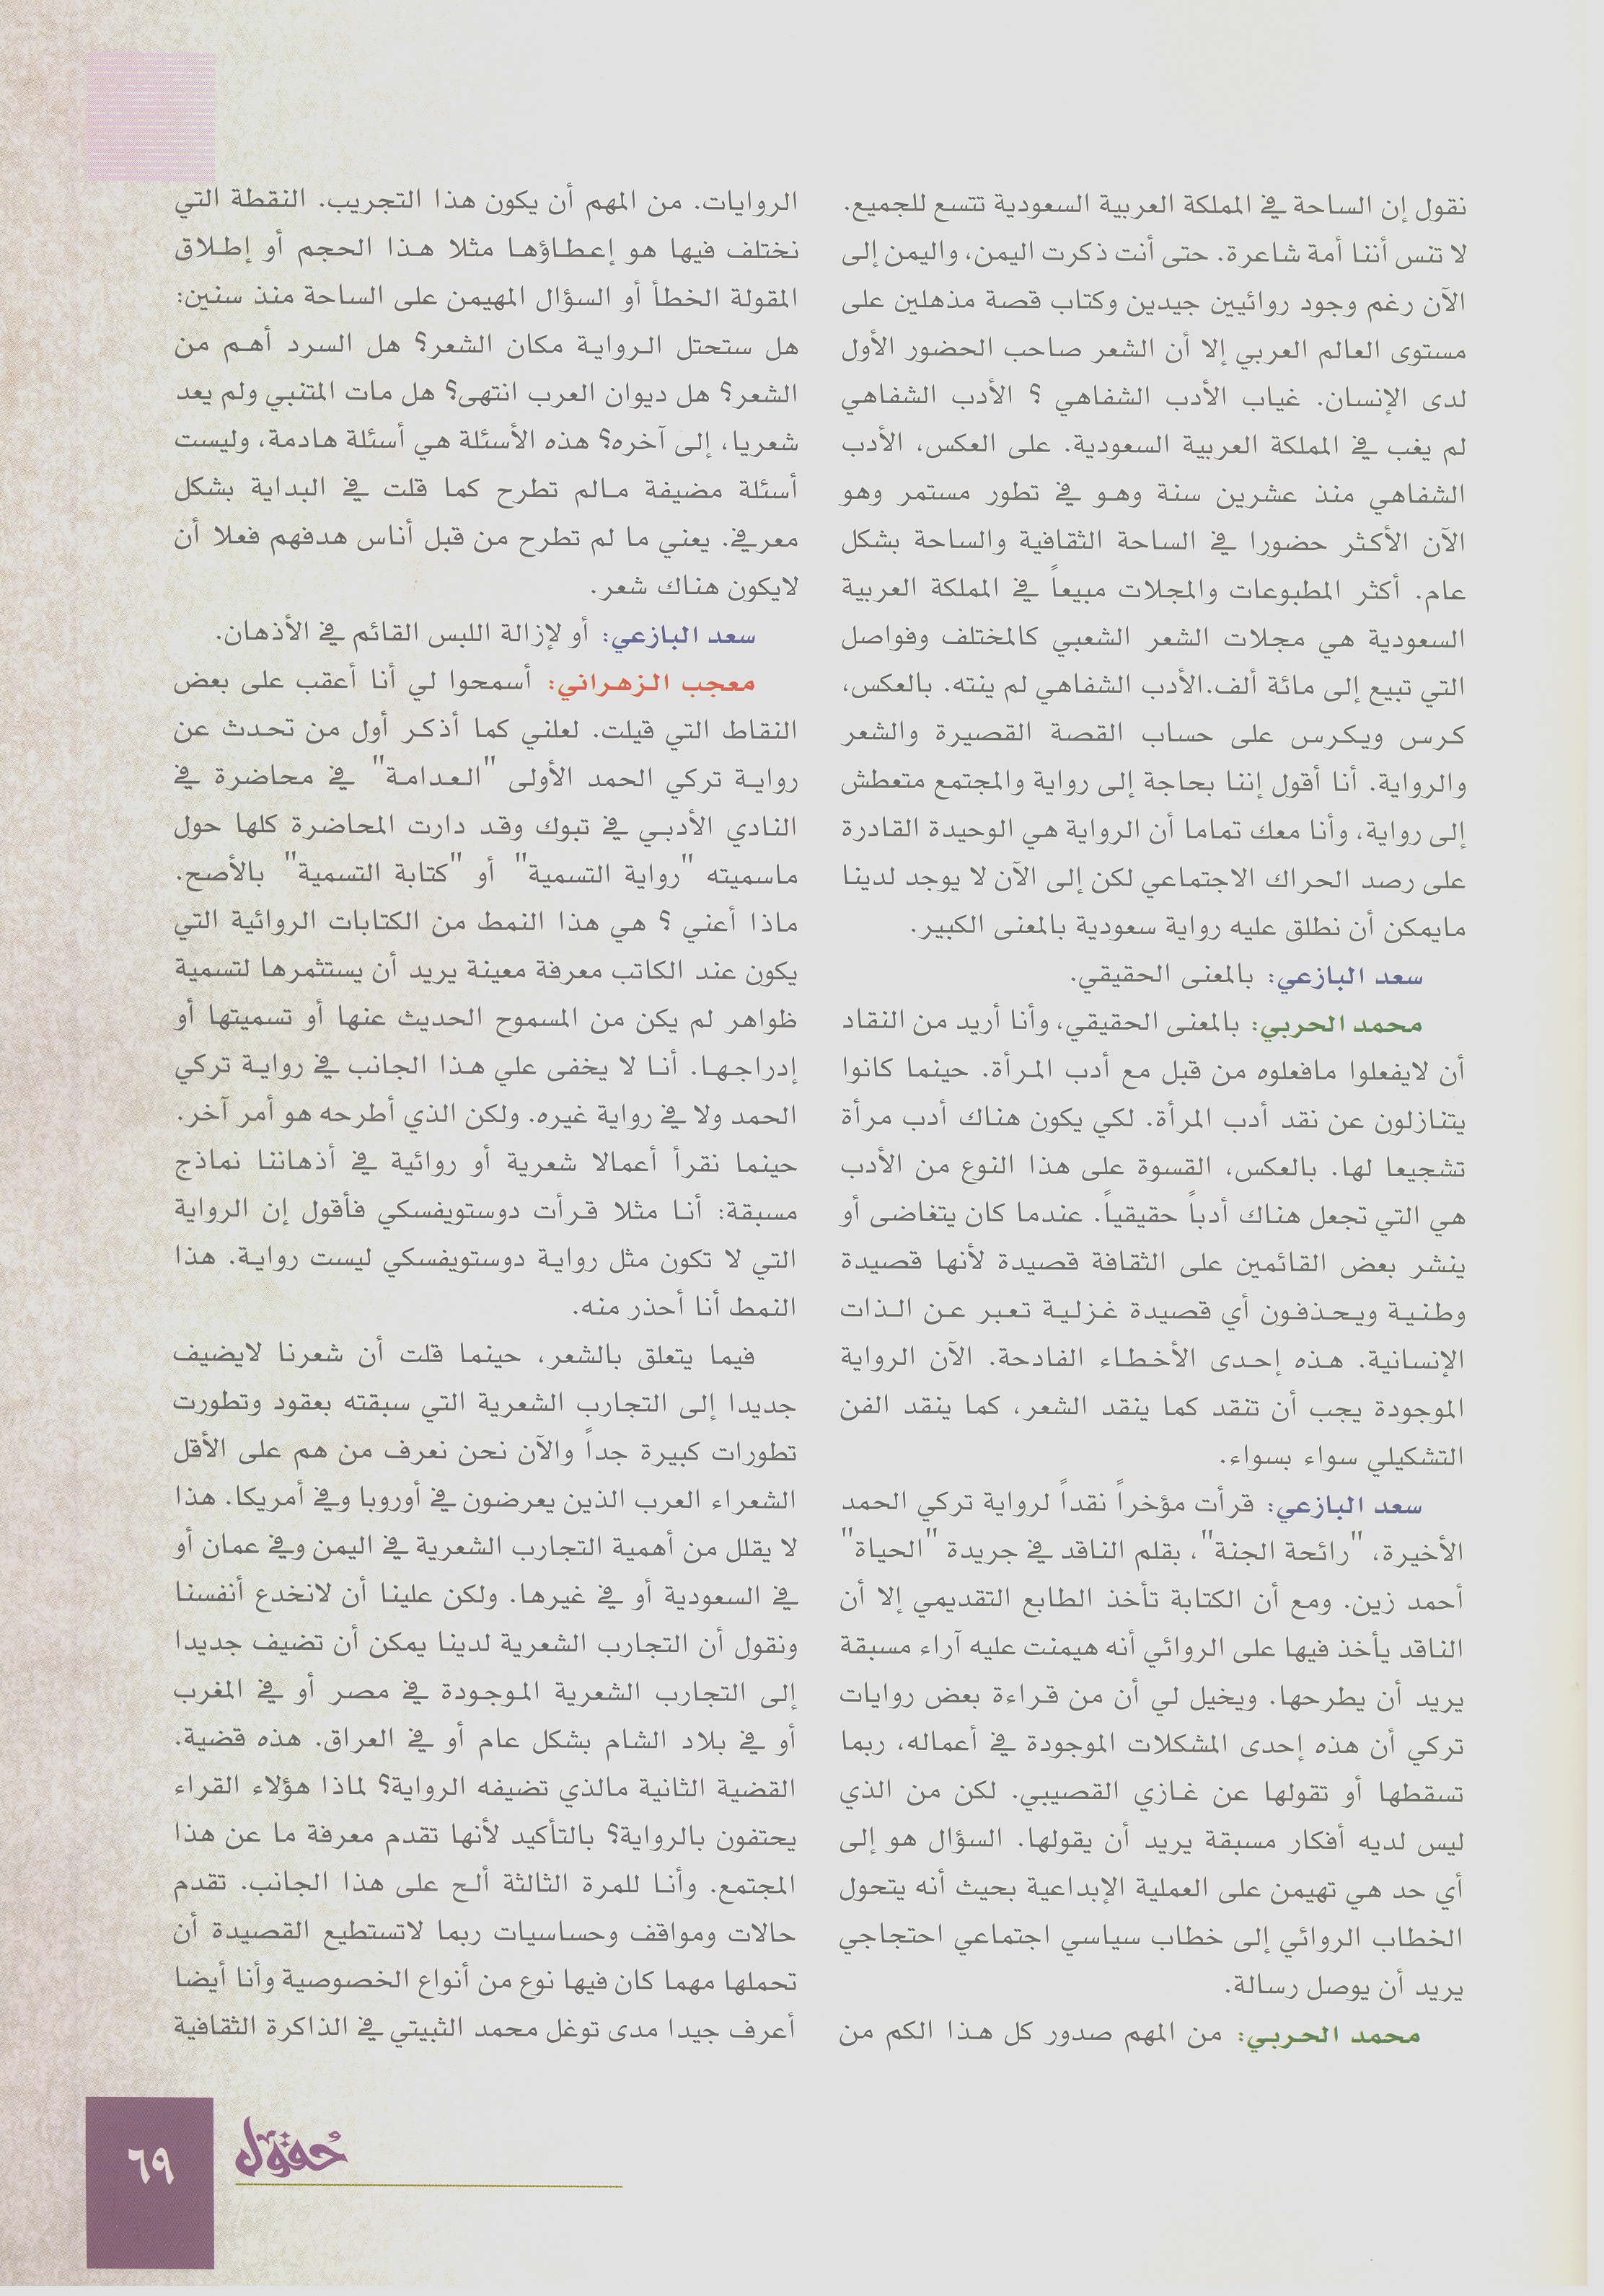 نقول إن الساحة في المملكة العربية السعودية تتسع للجميع.
لا تنس أننا أمة شاعرة. حتى أنت ذكرت اليمن، واليمن إلى
الآن رغم وجود روائيين جيدين وكتاب قصة مذهلين على
مستوى العالم العربي إلا أن الشعر صاحب الحضور الأول
لدى الإنسان. غياب الأدب الشفاهي ؟ الأدب الشفاهي
لم يغب في المملكة العربية السعودية. على العكس، الأدب
الشفاهي منذ عشرين سنة وهو في تطور مستمر وهو
الآن الأكثر حضورا في الساحة الثقافية والساحة بشكل
عام. أكثر المطبوعات والمجلات مبيعاً في المملكة العربية
السعودية هي مجلات الشعر الشعبي كالمختلف وفواصل
التي تبيع إلى مائة ألف.الأدب الشفاهي لم ينته. بالعكس،
كرس ويكرس على حساب القصة القصيرة والشعر
والرواية. أنا أقول إننا بحاجة إلى رواية والمجتمع متعطش
إلى رواية، وأنا معك تماما أن الرواية هي الوحيدة القادرة
على رصد الحراك الاجتماعي لكن إلى الآن لا يوجد لدينا
مايمكن أن نطلق عليه رواية سعودية بالمعنى الكبير.
سعد البازعي: بالمعنى الحقيقي.
محمد الحربي: بالمعنى الحقيقي، وأنا أريد من النقاد
أن لايفعلوا مافعلوه من قبل مع أدب المرأة. حينما كانوا
يتنازلون عن نقد أدب المرأة. لكي يكون هناك أدب مرأة
تشجيعا لها. بالعكس، القسوة على هذا النوع من الأدب
هي التي تجعل هناك أدباً حقيقياً. عندما كان يتغاضى أو
ينشر بعض القائمين على الثقافة قصيدة لأنها قصيدة
وطنية ويحذفون أي قصيدة غزلية تعبر عن الذات
الإنسانية. هذه إحدى الأخطاء الفادحة. الآن الرواية
الموجودة يجب أن تنقد كما ينقد الشعر، كما ينقد الفن
التشكيلي سواء بسواء.
سعد البازعي: قرأت مؤخراً نقداً لرواية تركي الحمد
الأخيرة، "رائحة الجنة"، بقلم الناقد في جريدة "الحياة"
أحمد زين. ومع أن الكتابة تأخذ الطابع التقديمي إلا أن
الناقد يأخذ فيها على الروائي أنه هيمنت عليه آراء مسبقة
يريد أن يطرحها. ويخيل لي أن من قراءة بعض روايات
تركي أن هذه إحدى المشكلات الموجودة في أعماله، ربما
تسقطها أو تقولها عن غازي القصيبي. لكن من الذي
ليس لديه أفكار مسبقة يريد أن يقولها. السؤال هو إلى
أي حد هي تهيمن على العملية الإبداعية بحيث أنه يتحول
الخطاب الروائي إلى خطاب سياسي اجتماعي احتجاجي
يريد أن يوصل رسالة.
محمد الحربي: من المهم صدور كل هذا الكم من
الروايات. من المهم أن يكون هذا التجريب. النقطة التي
نختلف فيها هو إعطاؤها مثلا هذا الحجم أو إطلاق
المقولة الخطأ أو السؤال المهيمن على الساحة منذ سنين:
هل ستحتل الرواية مكان الشعر؟ هل السرد أهم من
الشعر؟ هل ديوان العرب انتهى؟ هل مات المتنبي ولم يعد
شعريا، إلى آخره؟ هذه الأسئلة هي أسئلة هادمة، وليست
أسئلة مضيفة مالم تطرح كما قلت في البداية بشكل
معرفي. يعني ما لم تطرح من قبل أناس هدفهم فعلا أن
لايكون هناك شعر.
سعد البازعي: أو لإزالة اللبس القائم في الأذهان.
معجب الزهراني: أسمحوا لي أنا أعقب على بعض
النقاط التي قيلت. لعلني كما أذكر أول من تحدث عن
رواية تركي الحمد الأولى "العدامة" في محاضرة في
النادي الأدبي في تبوك وقد دارت المحاضرة كلها حول
ماسميته "رواية التسمية" أو "كتابة التسمية" بالأصح.
ماذا أعني ؟ هي هذا النمط من الكتابات الروائية التي
يكون عند الكاتب معرفة معينة يريد أن يستثمرها لتسمية
ظواهر لم يكن من المسموح الحديث عنها أو تسميتها أو
إدراجها. أنا لا يخفى علي هذا الجانب في رواية تركي
الحمد ولا في رواية غيره. ولكن الذي أطرحه هو أمر آخر.
حينما نقرأ أعمالا شعرية أو روائية في أذهاننا نماذج
مسبقة: أنا مثلا قرأت دوستويفسكي فأقول إن الرواية
التي لا تكون مثل رواية دوستويفسكي ليست رواية. هذا
النمط أنا أحذر منه.
فيما يتعلق بالشعر، حينما قلت أن شعرنا لايضيف
جديدا إلى التجارب الشعرية التي سبقته بعقود وتطورت
تطورات كبيرة جداً والآن نحن نعرف من هم على الأقل
الشعراء العرب الذين يعرضون في أوروبا وفي أمريكا. هذا
لا يقلل من أهمية التجارب الشعرية في اليمن وفي عمان أو
في السعودية أو في غيرها. ولكن علينا أن لانخدع أنفسنا
ونقول أن التجارب الشعرية لدينا يمكن أن تضيف جديدا
إلى التجارب الشعرية الموجودة في مصر أو في المغرب
أو في بلاد الشام بشكل عام أو في العراق. هذه قضية.
القضية الثانية مالذي تضيفه الرواية؟ لماذا هؤلاء القراء
يحتفون بالرواية؟ بالتأكيد لأنها تقدم معرفة ما عن هذا
المجتمع. وأنا للمرة الثالثة ألح على هذا الجانب. تقدم
حالات ومواقف وحساسيات ربما لاتستطيع القصيدة أن
تحملها مهما كان فيها نوع من أنواع الخصوصية وأنا أيضا
أعرف جيدا مدى توغل محمد الثبيتي في الذاكرة الثقافية
حُقول
٦٩